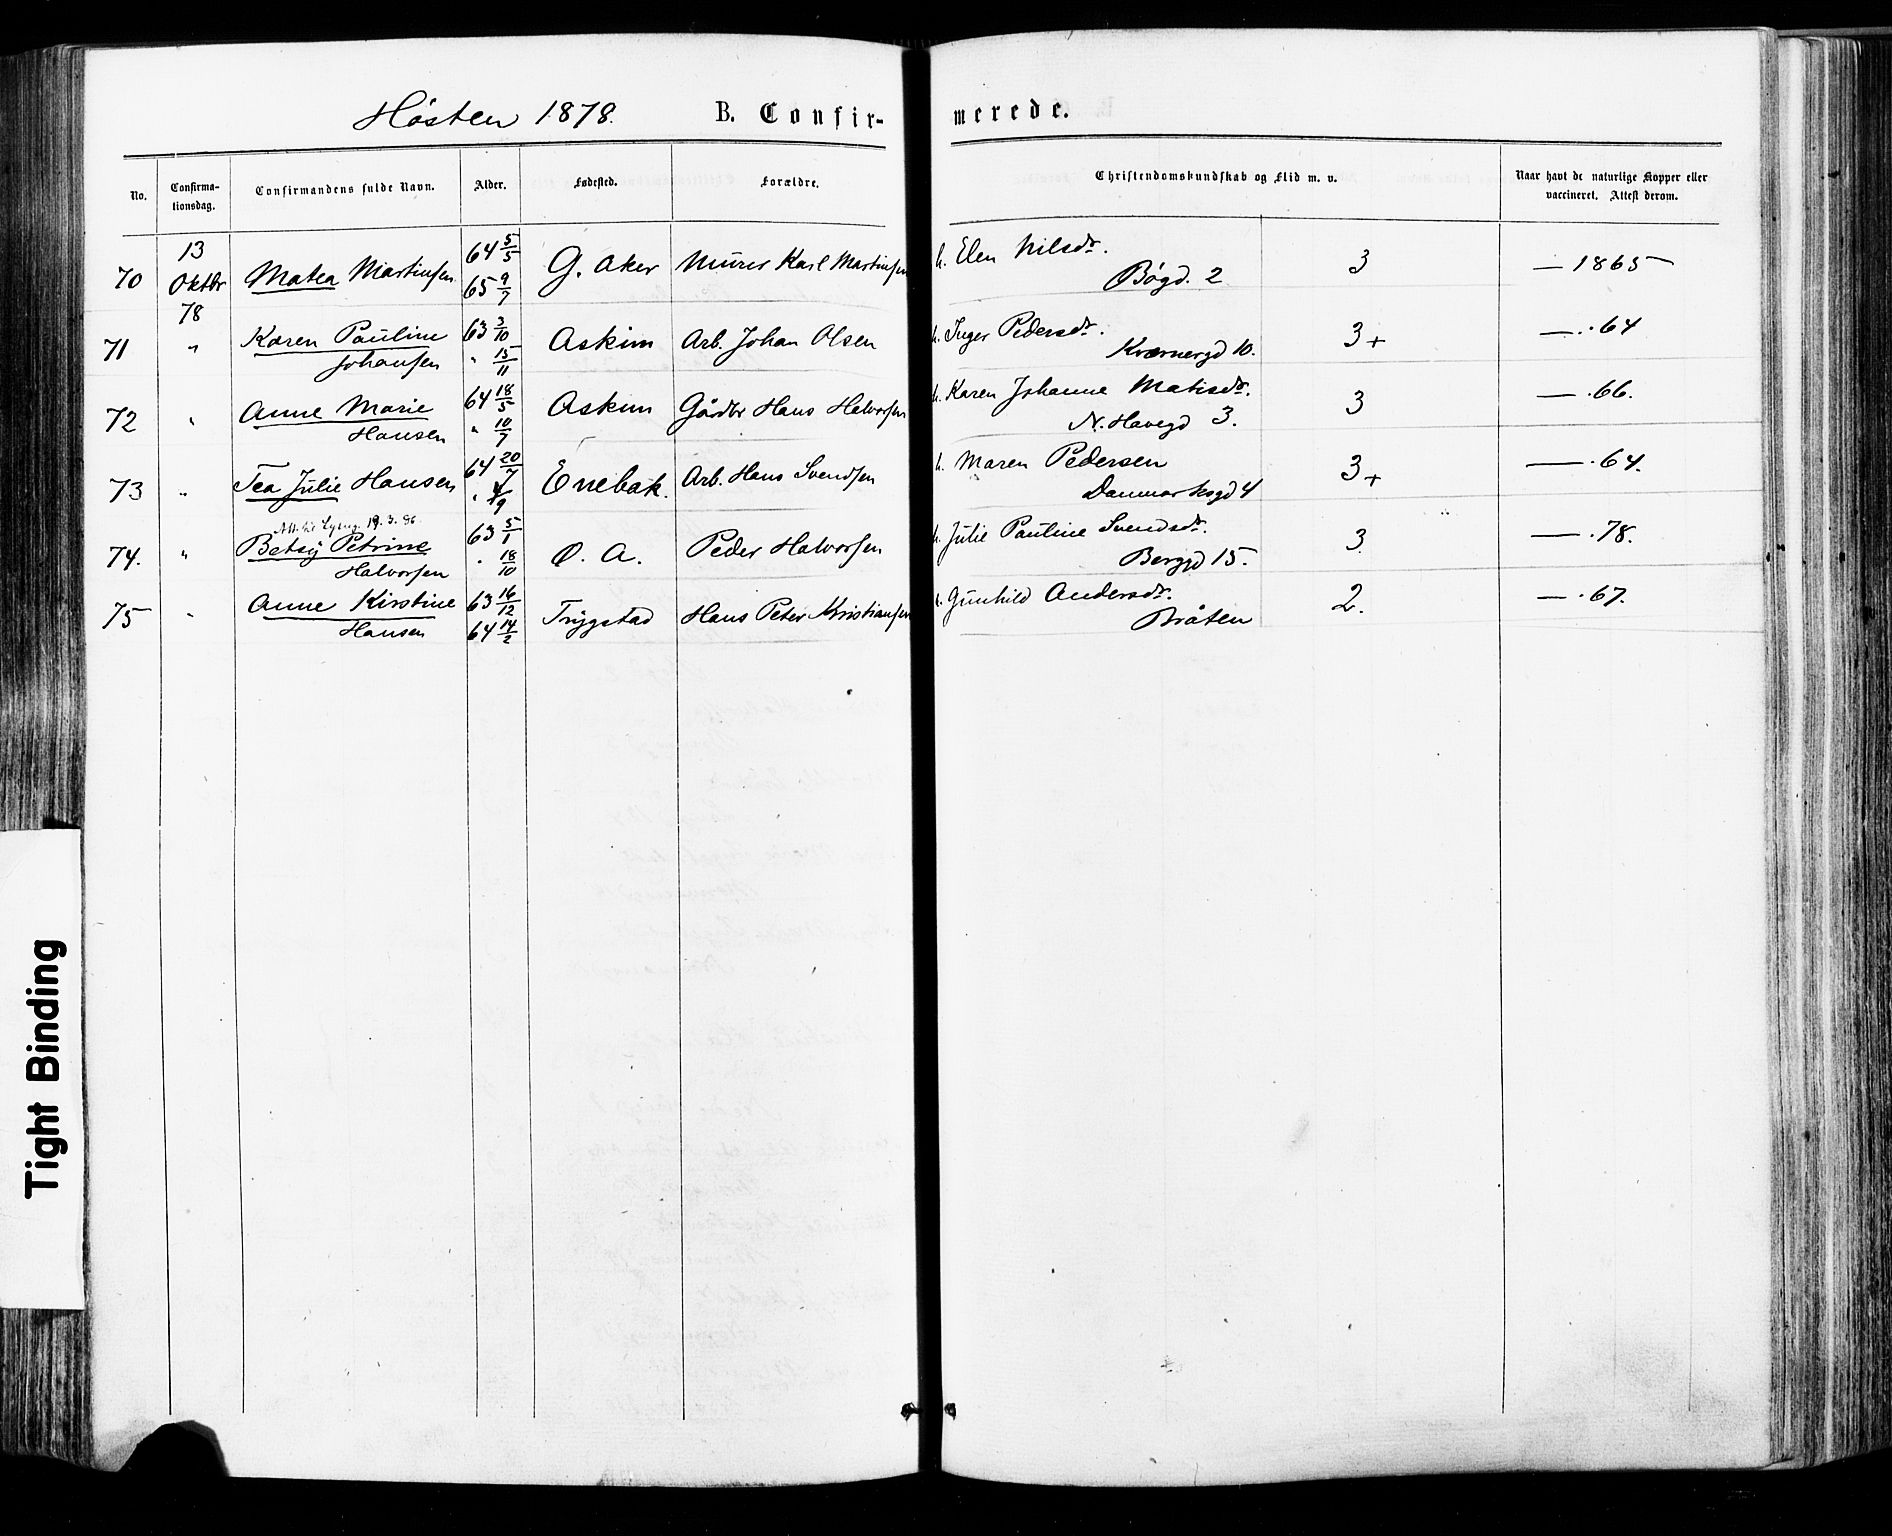 Høsten 1878. B. Confir- merede.
No. Confirma- tionsdag. Confirmandens fulde Navn. Alder. Fødested. Forældre. Christendomskundskab og Flid m. v. Naar havt de naturlige Kopper eller vaccineret. Attest derom.
70 13 Oktbr 78 Matea Martinsen 64 5/5 65 9/7 G. Aker Murer Karl Martinsen h. Elen Nilsdr. Bøgd. 2 3 — 1865 —
71 " Karen Pauline Johansen 63 3/10 " 15/11 Askim Arb. Johan Olsen h. Inger Pedersdr. Kværnergd 10. 3+ — . 64
72 " Anne Marie Hansen 64 18/5 " 10/7 Askim Gårdbr Hans Halvorsen h. Karen Johanne Matisdr. N. Havegd 3. 3 — . 66.
73 " Tea Julie Hansen 64 20/7 " 4/9 Enebak. Arb. Hans Svendsen h. Maren Pedersen Danmarksgd 4 3+ — . 64.
19.3.86.
74. " Betsy Petrine Halvorsen 63 5/1 " 18/10 O. A. Peder Halvorsen h. Julie Pauline Svendsdr. Berggd 15. 3 — . 78.
75 " Anne Kirstine Hansen 63 16/12 64 14/2 Trygstad Hans Peter Kristiansen h. Gunhild Andersdr. Bråten 2. — . 67.
Tight Binding